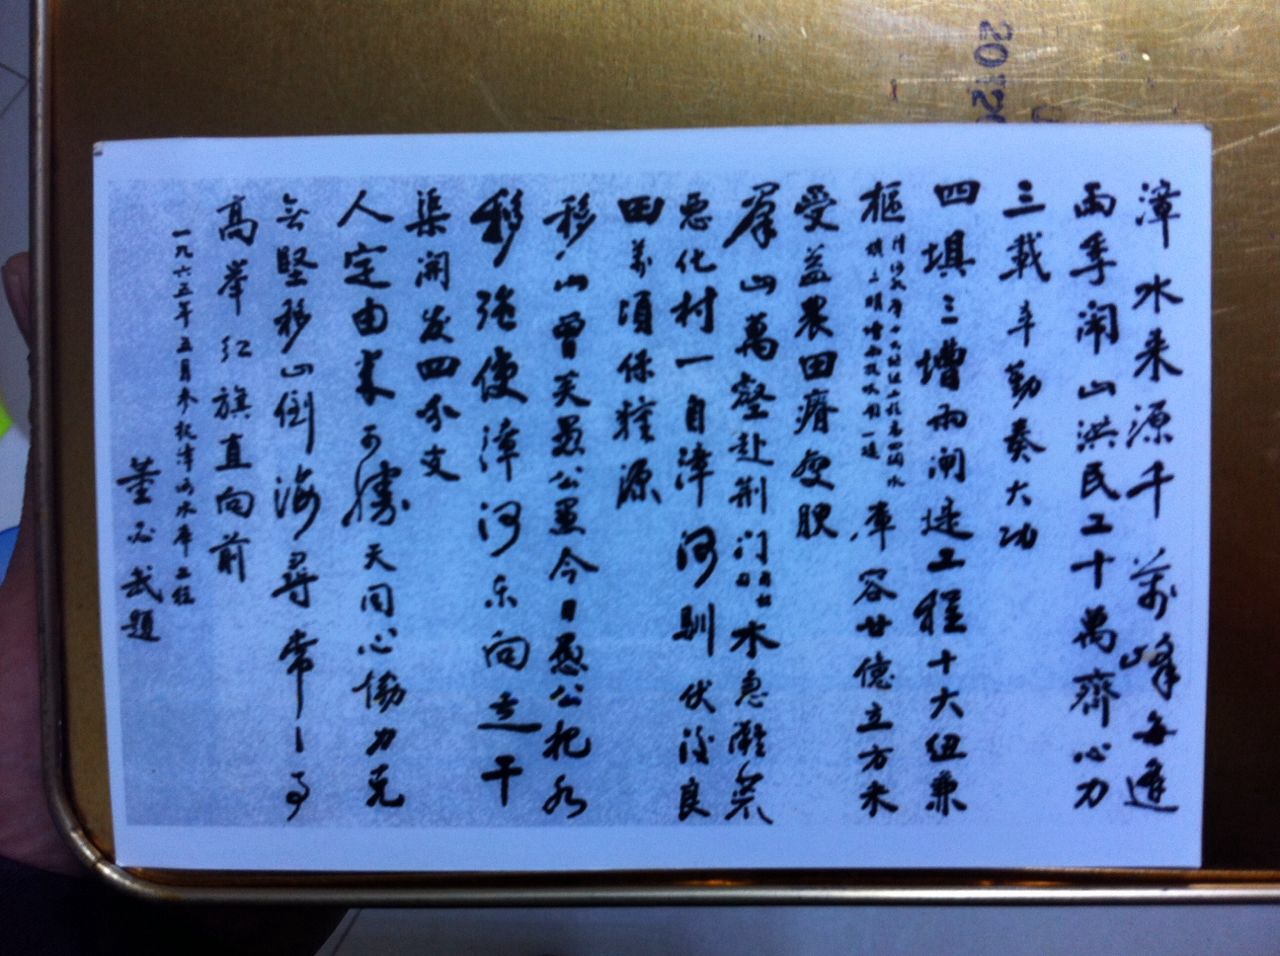 漳水来源千万峰每逢
雨季闹山洪民工十万齐心力
三载辛勤奏大功
四填三槽两闸连工程十大纽兼
枢 库容廿亿立方米
受益农田瘠变腴
群山万壑赴荆门 水患频
恶化村一自漳河驯伏后良
田万顷保粮源
移山曾笑愚公愚今日愚公把水
移强使漳河东向走干
渠开发四分支
人定由来可胜天同心协力克
坚移山倒海寻常事
高举红旗直向前
一九六五年五月参观漳河水库工程
董必武题
2012